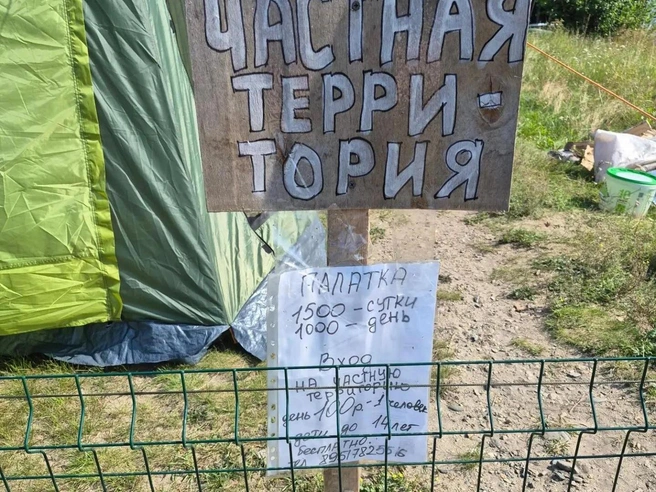 ЧАСТНАЯ
ТЕРРИ-
ТОРИЯ
ПАЛАТКА
1500 - СУТКИ
1000 - день
Вход
НА ЧАСТНУЮ
территорию
день 100р - 1 человек
дети до 14 лет
бесплатно.